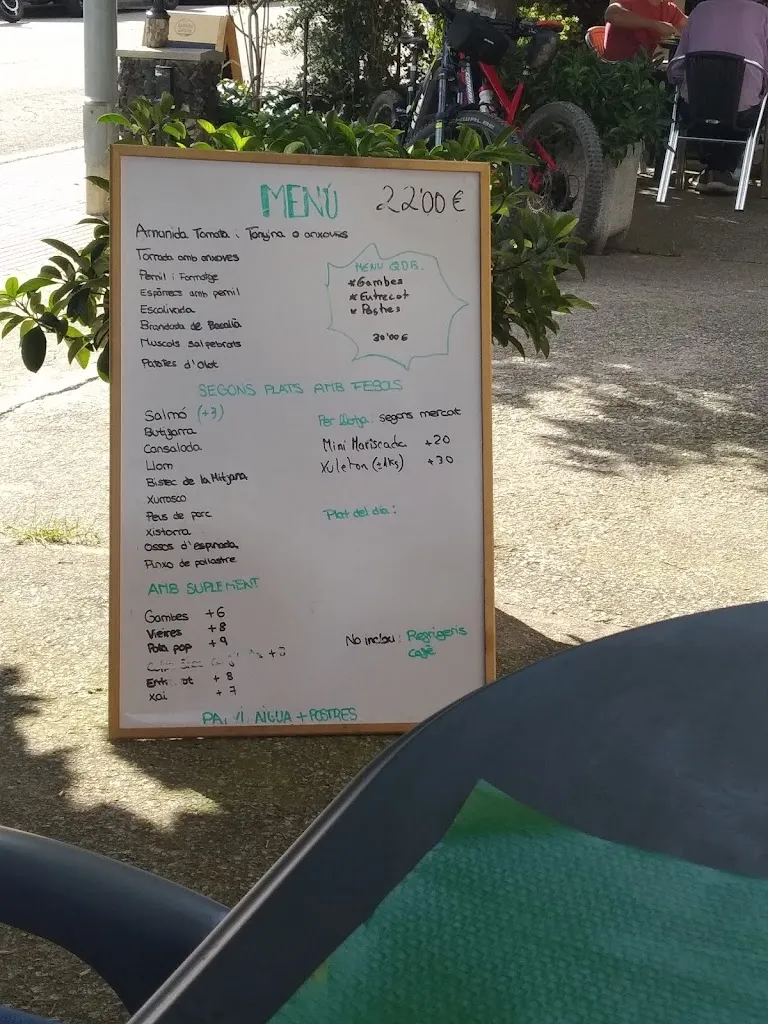 MENÚ 22'00 €
Amanida Tomata i Tonyina o anxoves
Torrada amb anxoves
Pernil i Formatge
Espàrrecs amb pernil
Escalivada
Brandada de Bacallà
Musclos salpebrats
Patates d'Olot
MENU QDB.
*Gambes
*Entrecot
*Postres
30'00 €
SEGONS PLATS AMB FESOLS
Salmó (+3)
Butifarra
Cansalada
Llom
Bistec de la Mitjana
Xurrasco
Peus de porc
Xistorra
Ossos d'espinada
Pinxo de pollastre
Per llotja: segons mercat
Mini Mariscada +20
Xuleton (±1kg) +30
Plat del dia:
AMB SUPLEMENT
Gambes +6
Vieires +8
Pota pop +9
+8
Xai +7
No inclou: Refrigeris
Cafè
AIGUA + POSTRES